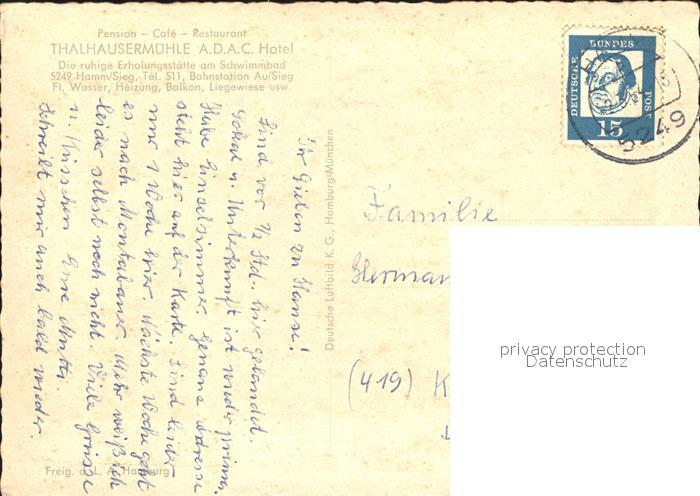 Pension – Café – Restaurant
THALHAUSERMÜHLE A.D.A.C. Hotel
Die ruhige Erholungsstätte am Schwimmbad
5249 Hamm/Sieg, Tel. 511, Bahnstation Au/Sieg
Fl. Wasser, Heizung, Balkon, Liegewiese usw.
Ihr Lieben zu Hause!
Sind vor ½ Std. hier gelandet.
Lokal u. Unterkunft ist wieder prima.
Habe Einzelzimmer. Genaue Adresse
steht hier auf der Karte. Sind leider
nur 1 Woche hier. Nächste Woche geht
es nach Montabaur. Mehr weiß ich
leider selbst noch nicht. Viele Grüsse
u. Küsschen Eure Mutti.
Schreibt mir auch bald wieder.
Freig. d. L. A. Hamburg
Deutsche Luftbild K. G., Hamburg-München
DEUTSCHE
BUNDES
POST
15
5249
Familie
Herman
(419) K
privacy protection
Datenschutz